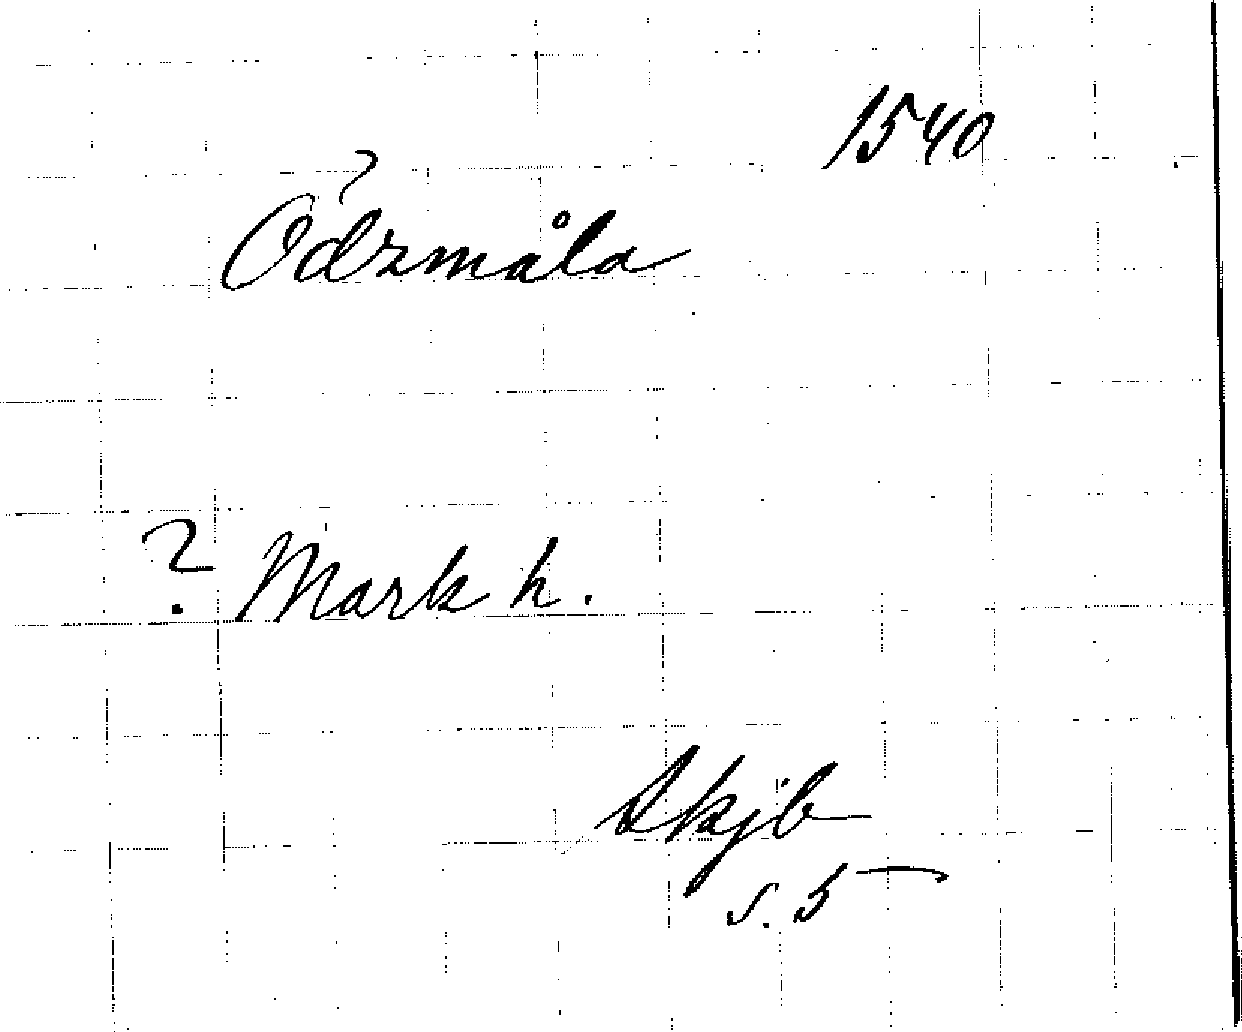 1540
?
Odzmåla
? Mark h.
Skjb
s. 5